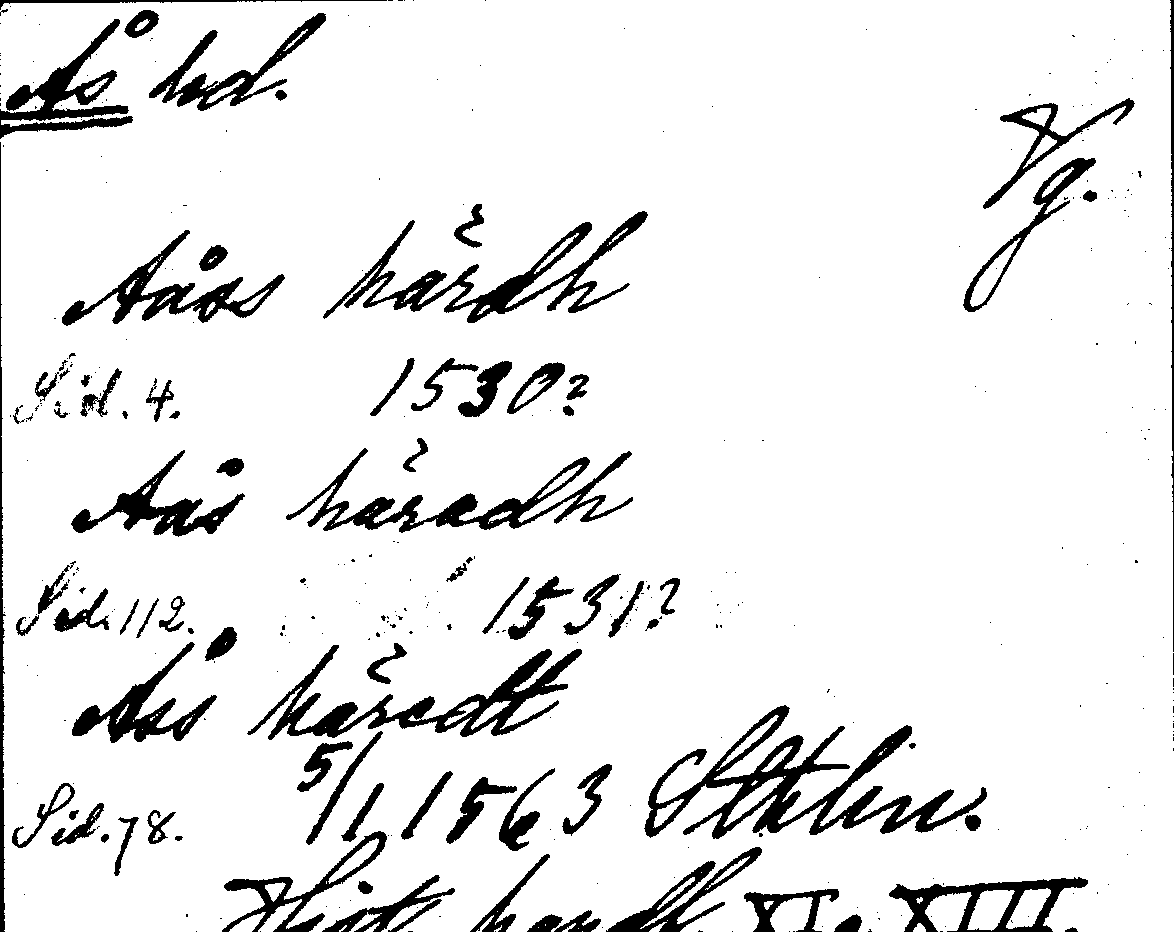 Ås hd.
Vg.
Aåss härdh
Sid. 4. 1530?
Aås häradh
Sid. 112. 1531?
Åss häredt
Sid. 78. 5/1 1563 Sthlm.
handl. XI o XIII.